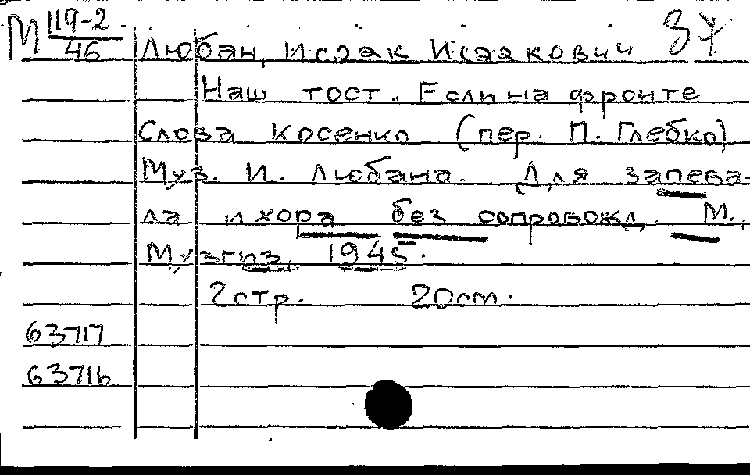 М 119-2/46 Любан, Исаак Исаакович 37
Наш тост. Если на фронте
Слова Косенко (пер. П. Глебко)
Муз. И. Любана. Для запева-
ла и хора без сопровожд. М.,
Музгиз, 1945.
2стр. 20см.
63717
63716